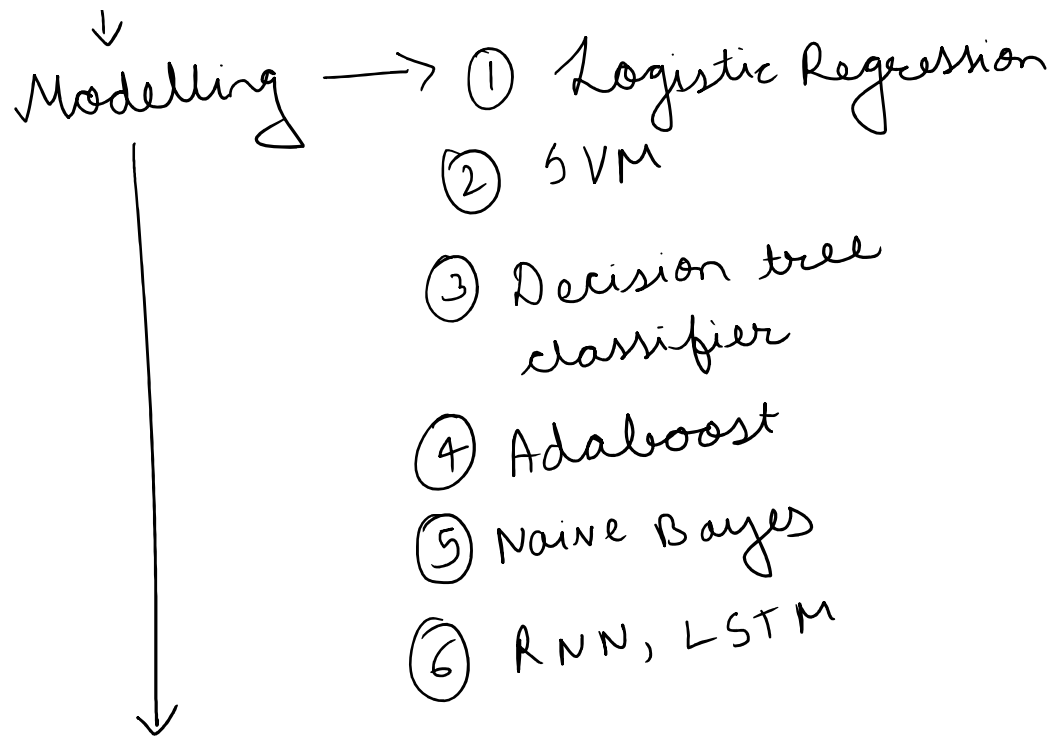 ↓
Modelling → ① Logistic Regression
② SVM
③ Decision tree
classifier
④ Adaboost
⑤ Naive Bayes
⑥ RNN, LSTM